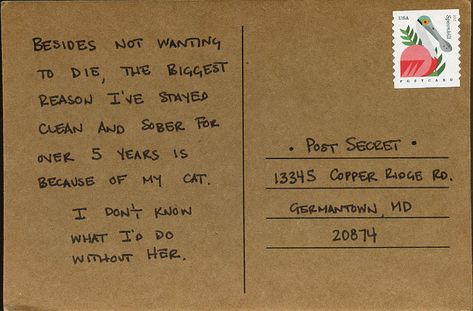 BESIDES NOT WANTING
TO DIE, THE BIGGEST
REASON I'VE STAYED
CLEAN AND SOBER FOR
OVER 5 YEARS IS
BECAUSE OF MY CAT.
I DON'T KNOW
WHAT I'D DO
WITHOUT HER.
USA
Spoonbill
POSTCARD
• POST SECRET •
13345 COPPER RIDGE RD.
GERMANTOWN, MD
20874